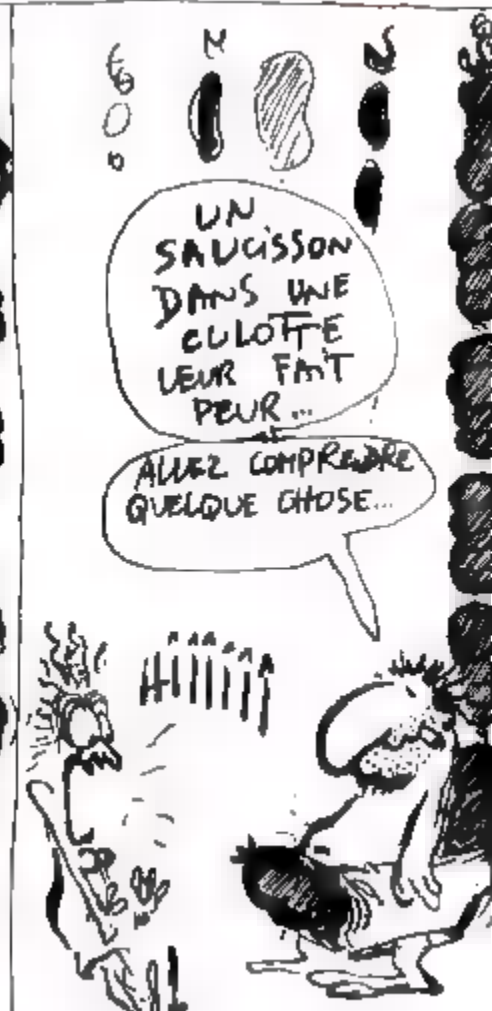 UN
SAUCISSON
DANS UNE
CULOTTE
LEUR FAIT
PEUR...
ALLEZ COMPRENDRE
QUELQUE CHOSE...
HIIIIII